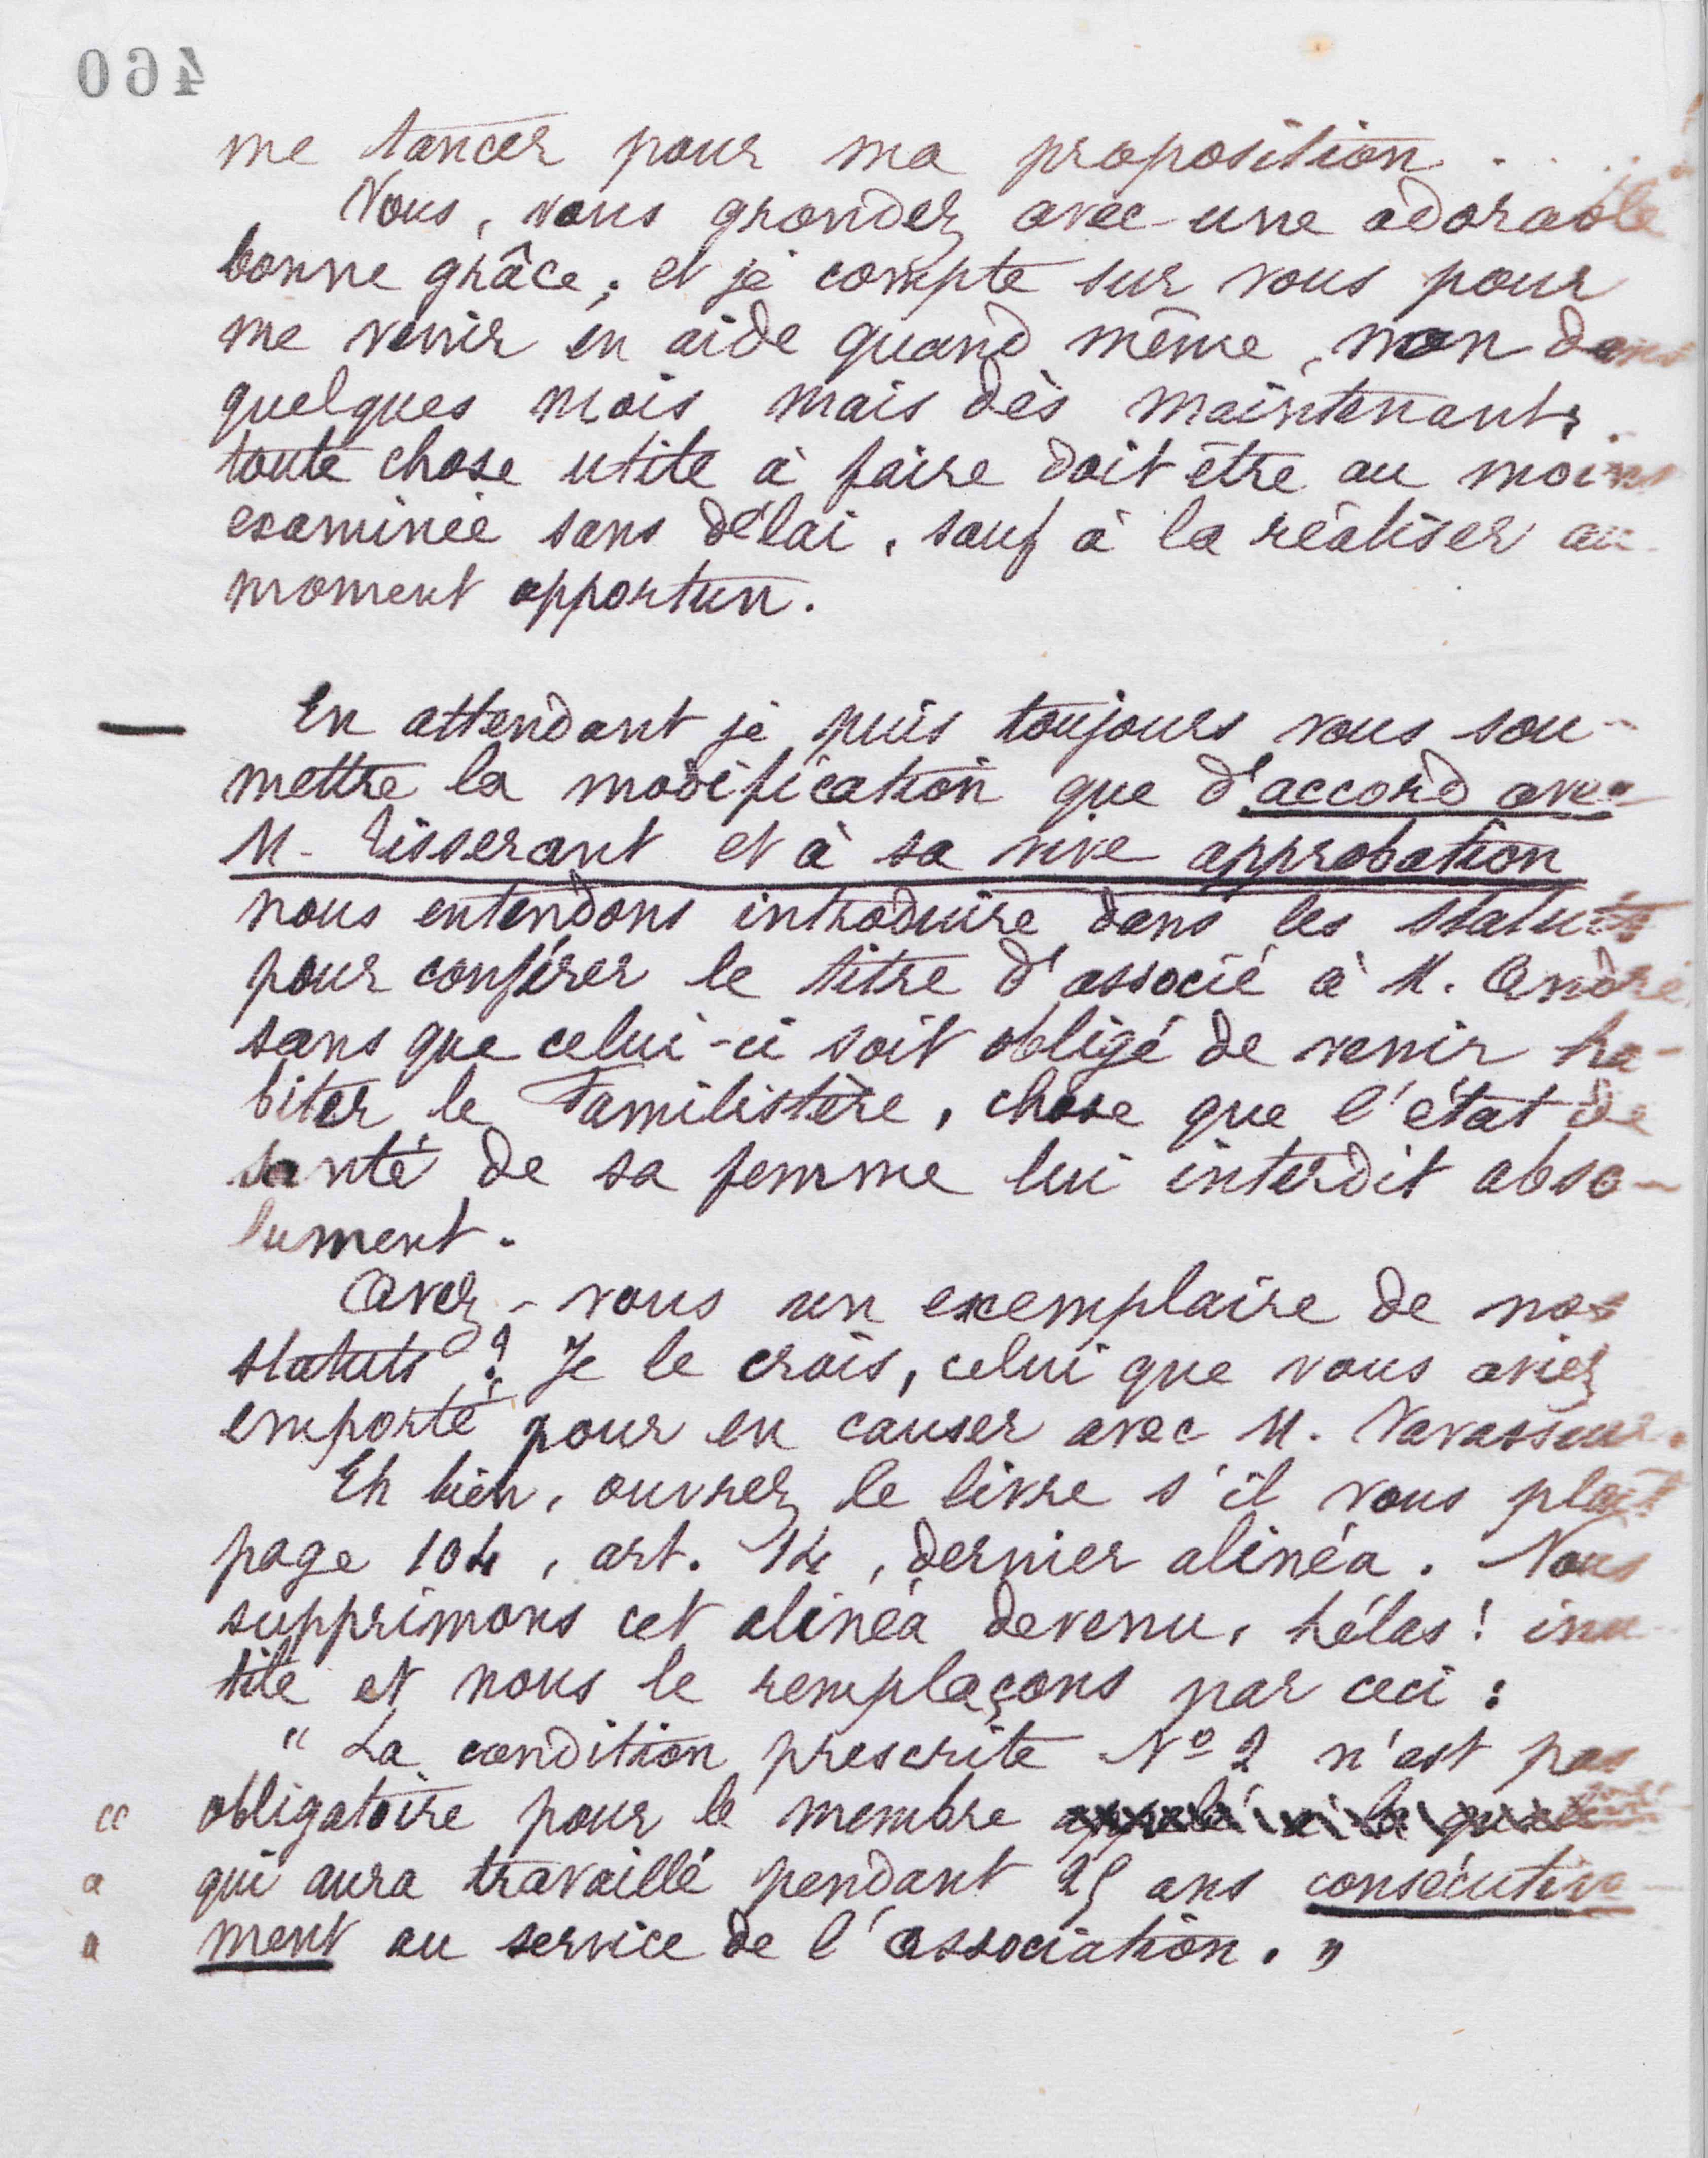 460
me tancer pour ma proposition . . . .
Vous, vous grondez avec une adorable
bonne grâce; et je compte sur vous pour
me venir en aide quand même, non dans
quelques mois mais dès maintenant,
toute chose utile à faire doit être au moins
examinée sans délai, sauf à la réaliser au
moment opportun.
— En attendant je puis toujours vous sou-
mettre la modification que d'accord avec
M. Tisserant et à sa vive approbation
nous entendons introduire dans les statuts
pour conférer le titre d'associé à M. André
sans que celui-ci soit obligé de venir ha-
biter le Familistère, chose que l'état de
santé de sa femme lui interdit abso-
lument.
Avez-vous un exemplaire de nos
statuts ? Je le crois, celui que vous aviez
emporté pour en causer avec M. Vavasseur.
Eh bien, ouvrez le livre s'il vous plait
page 104, art. 14, dernier alinéa. Nous
supprimons cet alinéa devenu, hélas ! inu-
tile et nous le remplaçons par ceci :
" La condition prescrite Nº 2 n'est pas
" obligatoire pour le membre
" qui aura travaillé pendant 25 ans consécutive-
" ment au service de l'association. "